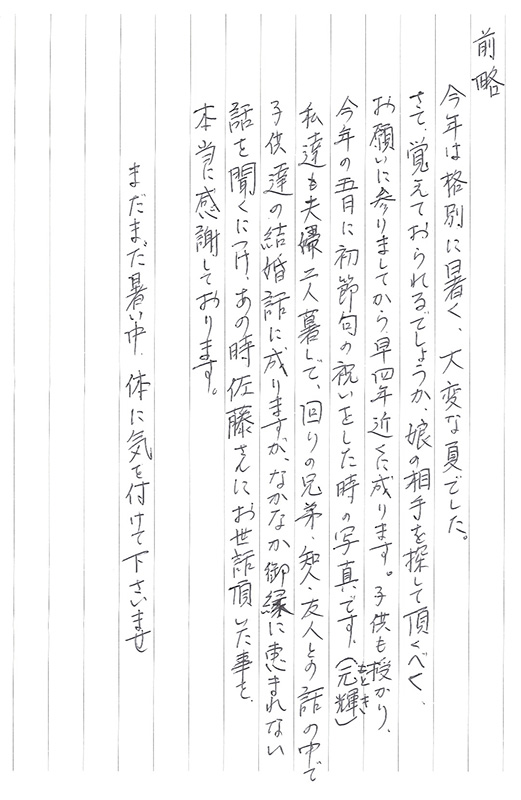 前略
今年は格別に暑く、大変な夏でした。
さて、覚えておられるでしょうか、娘の相手を探して頂くべく、
お願いに参りましてから早四年近くに成ります。子供も授かり、
今年の五月に初節句の祝いをした時の写真です、(元輝)もとき
私達も夫婦二人暮しで、回りの兄弟、知人・友人との話の中で
子供達の結婚話に成りますが、なかなか御縁に恵まれない
話を聞くにつけ、あの時佐藤さんにお世話頂いた事を、
本当に感謝しております。
まだまだ暑い中、体に気を付けて下さいませ